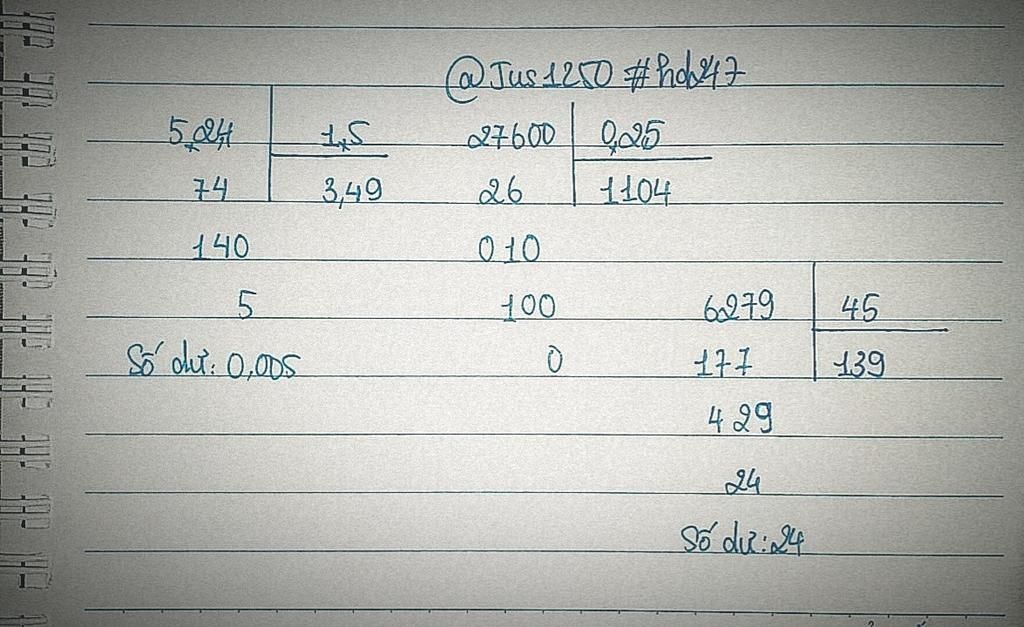 @Jus1250 #hdz47
5,24 1,5 27600 0,25
74 3,49 26 1104
140 010
5 100 6279 45
Số dư: 0,005 0 177 139
429
24
Số dư: 24